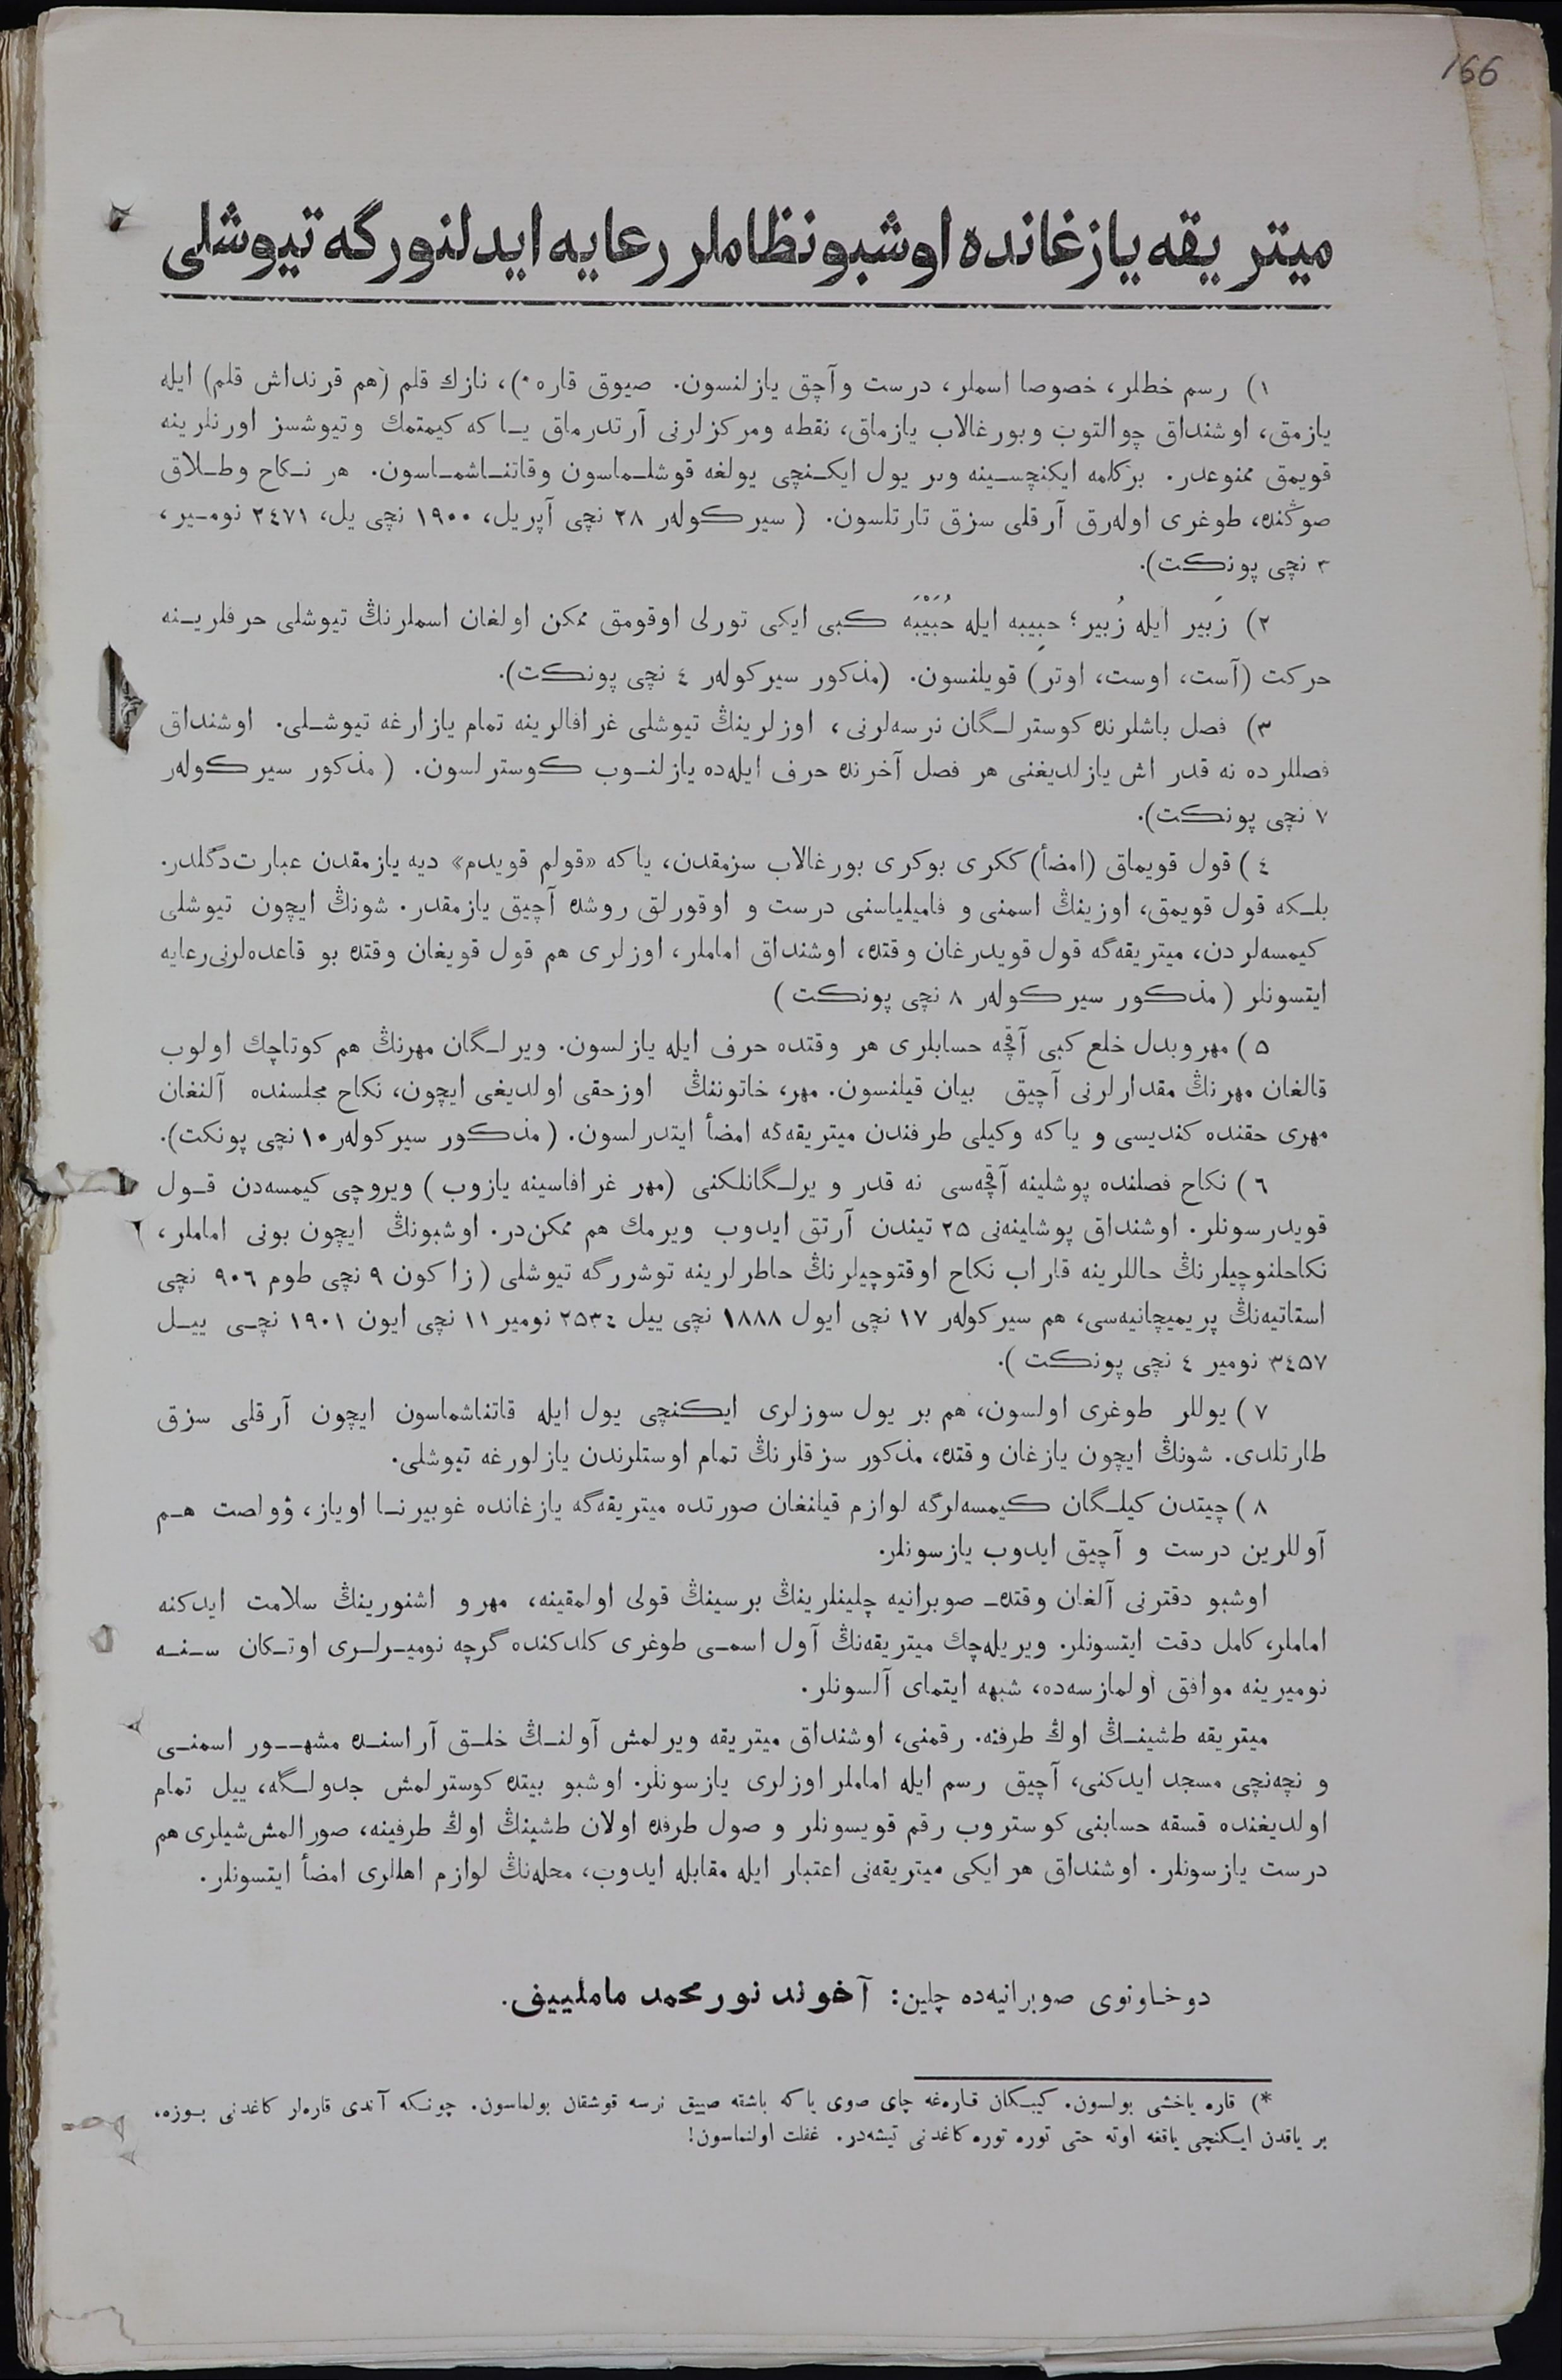 166
ميتريقه يازغانده اوشبو نظاملر رعايه ايدلنورگه تيوشلى
١) رسم خطلر، خصوصا اسملر، درست وآچق يازلنسون. صيوق قاره *)، نازك قلم (هم قرنداش قلم) ايله
يازمق، اوشنداق چوالتوب وبورغالاب يازماق، نقطه ومركزلرنى آرتدرماق يـا كه كيمتمك وتيوشسز اورنلرينه
قويمق ممنوعدر. بركلمه ايكنچسـينه وبر يول ايكـنچى يولغه قوشلـماسون وقاتنـاشمـاسون. هر نـكاح وطـلاق
صوڭنده، طوغرى اوله‌رق آرقلى سزق تارتلسون. (سيركوله‌ر ٢٨ نچى آپريل، ١٩٠٠ نچى يل، ٢٤٧١ نومـير،
٣ نچى پونكت).
٢) زَبير ايله زُبير؛ حبِيبه ايله حُبَيْبَه كبى ايكى تورلى اوقومق ممكن اولغان اسملرنڭ تيوشلى حرفلريـنه
حركت (آست، اوست، اوتر) قويلنسون. (مذكور سيركوله‌ر ٤ نچى پونكت).
٣) فصل باشلرنده كوسترلـگان نرسه‌لرنى، اوزلرينڭ تيوشلى غرافالرينه تمام يازارغه تيوشـلى. اوشنداق
فصللرده نه قدر اش يازلديغنى هر فصل آخرنده حرف ايله‌ده يازلنـوب كوسترلسون. (مذكور سيركوله‌ر
٧ نچى پونكت).
٤) قول قويماق (امضأ) ككرى بوكرى بورغالاب سزمقدن، ياكه «قولم قويدم» ديه يازمقدن عبارت‌دگلدر.
بلـكه قول قويمق، اوزينڭ اسمنى و فاميلياسنى درست و اوقورلق روشده آچيق يازمقدر. شونڭ ايچون تيوشلى
كيمسه‌لردن، ميتريقه‌گه قول قويدرغان وقتده، اوشنداق اماملر، اوزلرى هم قول قويغان وقتده بو قاعده‌لرنى‌رعايه
ايتسونلر (مذكور سيركوله‌ر ٨ نچى پونكت)
٥) مهر وبدل خلع كبى آقچه حسابلرى هر وقتده حرف ايله يازلسون. ويرلـگان مهرنڭ هم كوتاچك اولوب
قالغان مهرنڭ مقدارلرنى آچيق بيان قيلنسون. مهر، خاتوننڭ اوزحقى اولديغى ايچون، نكاح مجلسنده آلنغان
مهرى حقنده كنديسى و ياكه وكيلى طرفندن ميتريقه‌گه امضأ ايتدرلسون. (مذكور سيركوله‌ر ١٠ نچى پونكت).
٦) نكاح فصلنده پوشلينه آقچه‌سى نه قدر ويرلـگانلكنى (مهر غرافاسينه يازوب) ويروچى كيمسه‌دن قـول
قويدرسونلر. اوشنداق پوشلينه‌نى ٢٥ تيندن آرتق ايدوب ويرمك هم ممكن‌در. اوشبونڭ ايچون بونى اماملر،
نكاحلنوچيلرنڭ حاللرينه قاراب نكاح اوقتوچيلرنڭ خاطرلرينه توشررگه تيوشلى (زاكون ٩ نچى طوم ٩٠٦ نچى
استاتيه‌نڭ پريميچانيه‌سى، هم سيركوله‌ر ١٧ نچى ايول ١٨٨٨ نچى ييل ٢٥٣٤ نومير ١١ نچى ايون ١٩٠١ نچـى ييـل
٣٤٥٧ نومير ٤ نچى پونكت).
٧) يوللر طوغرى اولسون، هم بر يول سوزلرى ايكنچى يول ايله قاتناشماسون ايچون آرقلى سزق
طارتلدى. شونڭ ايچون يازغان وقتده، مذكور سزقلرنڭ تمام اوستلرندن يازلورغه تيوشلى.
٨) چيتدن كيلـگان كيمسه‌لرگه لوازم قيلنغان صورتده ميتريقه‌گه يازغانده غوبيرنـا اوياز، ۋواصت هـم
آوللرين درست و آچيق ايدوب يازسونلر.
اوشبو دفترنى آلغان وقتده‌ـ صوبرانيه چلينلرينڭ برسينڭ قولى اولمقينه، مهر و اشنورينڭ سلامت ايدكنه
اماملر، كامل دقت ايتسونلر. ويريله‌چك ميتريقه‌نڭ آول اسمـى طوغرى كلدكنده گرچه نوميـرلـرى اوتـكان سـنـه
نوميرينه موافق اولمازسه‌ده، شبهه ايتماى آلسونلر.
ميتريقه طشينـڭ اوڭ طرفنه. رقمنى، اوشنداق ميتريقه ويرلمش آولنـڭ خلـق آراسنـده مشهــور اسمنـى
و نچه‌نچى مسجد ايدكنى، آچيق رسم ايله اماملر اوزلرى يازسونلر. اوشبو بيتده كوسترلمش جدولـگه، ييل تمام
اولديغنده قسقه حسابنى كوستروب رقم قويسونلر و صول طرفده اولان طشينڭ اوڭ طرفينه، صورالمش‌شيلرى هم
درست يازسونلر. اوشنداق هر ايكى ميتريقه‌نى اعتبار ايله مقابله ايدوب، محله‌نڭ لوازم اهللرى امضأ ايتسونلر.
دوخـاونوى صوبرانيه‌ده چلين: آخوند نورمحمد ماملييف.
*) قاره ياخشى بولسون. كيبـكان قـاره‌غه چاى صوى ياكه باشقه صييق نرسه قوشقان بولماسون. چونـكه آندى قاره‌لر كاغدنى بـوزه،
بر ياقدن ايـكنچى ياقغه اوته حتى توره توره كاغدنى تيشه‌در. غفلت اولنماسون!